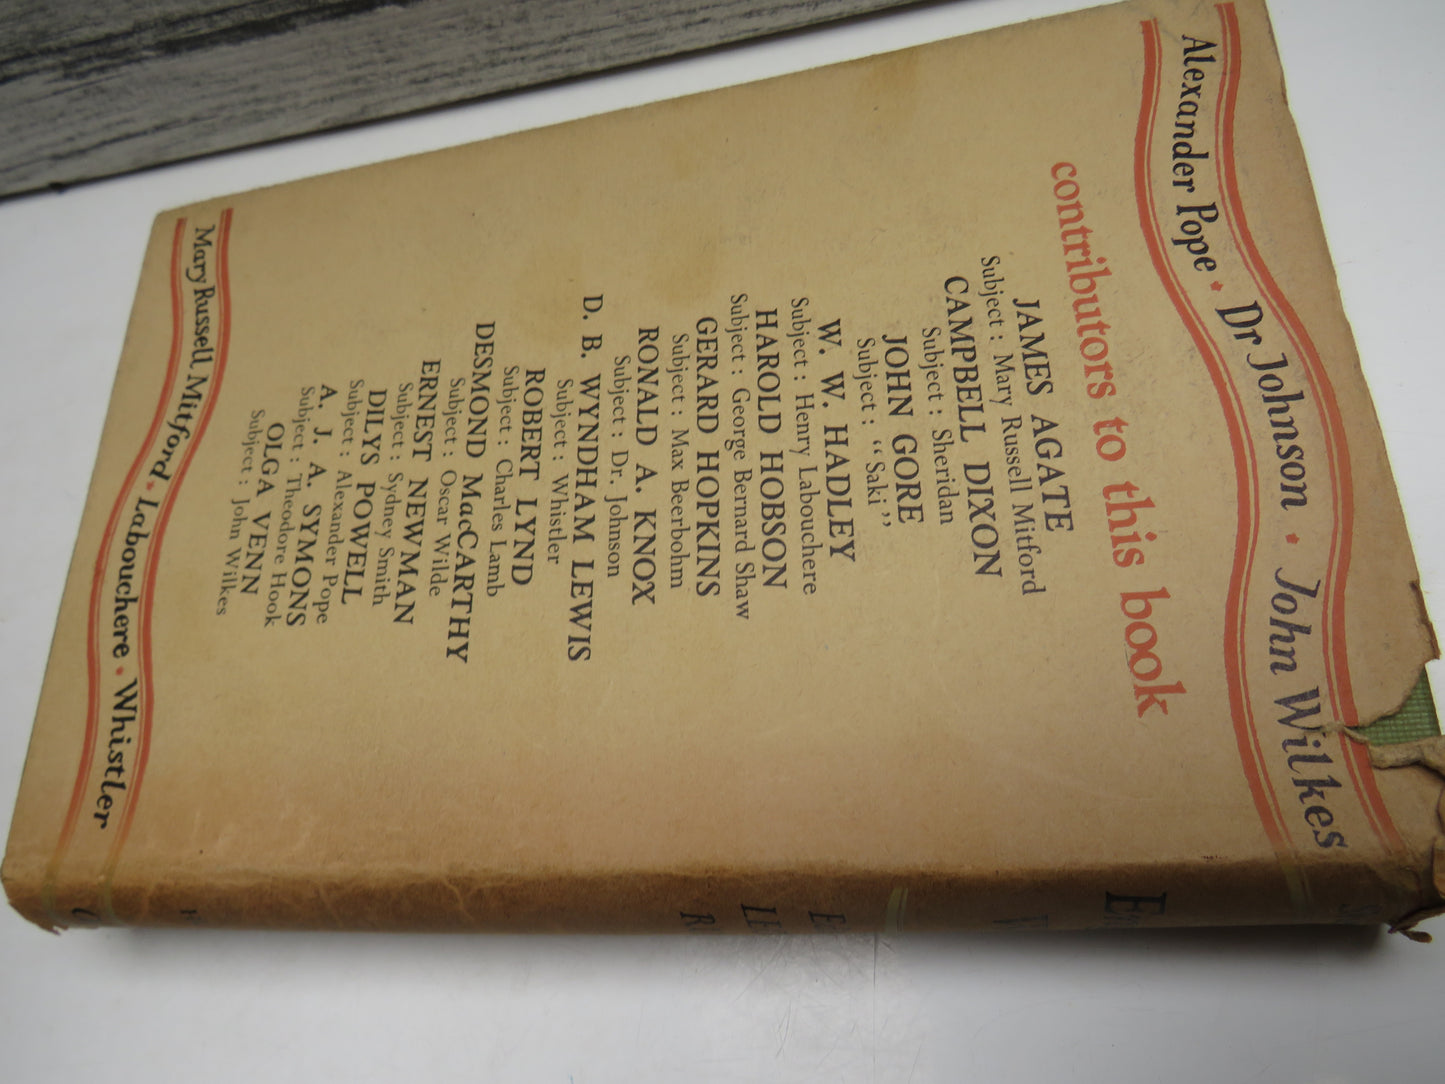 Alexander Pope · Dr Johnson · John Wilkes
contributors to this book
JAMES AGATE
Subject : Mary Russell Mitford
CAMPBELL DIXON
Subject : Sheridan
JOHN GORE
Subject : "Saki"
W. W. HADLEY
Subject : Henry Labouchere
HAROLD HOBSON
Subject : George Bernard Shaw
GERARD HOPKINS
Subject : Max Beerbohm
RONALD A. KNOX
Subject : Dr. Johnson
D. B. WYNDHAM LEWIS
Subject : Whistler
ROBERT LYND
Subject : Charles Lamb
DESMOND MacCARTHY
Subject : Oscar Wilde
ERNEST NEWMAN
Subject : Sydney Smith
DILYS POWELL
Subject : Alexander Pope
A. J. A. SYMONS
Subject : Theodore Hook
OLGA VENN
Subject : John Wilkes
Mary Russell Mitford · Labouchere · Whistler